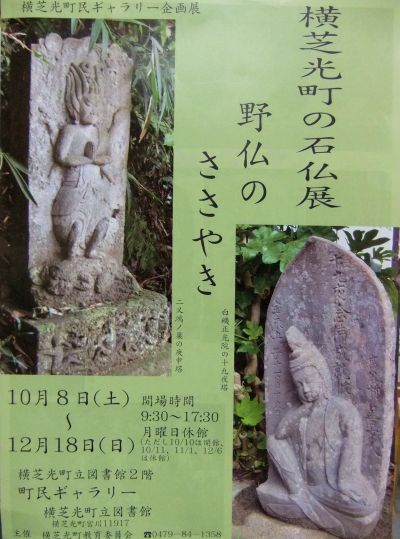 横芝光町民ギャラリー企画展
横芝光町の石仏展
野仏の
ささやき
二又鴻ノ巣の庚申塔
白磯正光院の十九夜塔
10月8日(土)
～
12月18日(日)
開場時間
9:30～17:30
月曜日休館
(ただし10/10は開館、
10/11、11/1、12/6
は休館)
横芝光町立図書館2階
町民ギャラリー
横芝光町立図書館
横芝光町宮川11917
主催 横芝光町教育委員会 ☎0479-84-1358